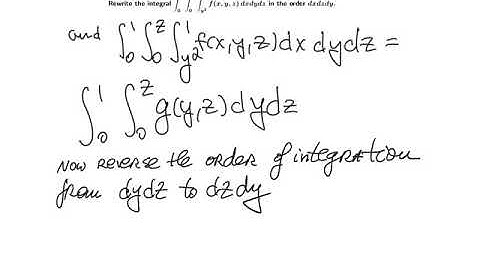 Rewrite the integral ∫₀¹ ∫₀ᶻ ∫_{y²}¹ f(x, y, z) dxdydz in the order dxdzdy.
and ∫₀¹ ∫₀ᶻ ∫_{y²}¹ f(x,y,z) dx dy dz =
∫₀¹ ∫₀ᶻ g(y,z) dy dz
Now reverse the order of integration
from dydz to dzdy